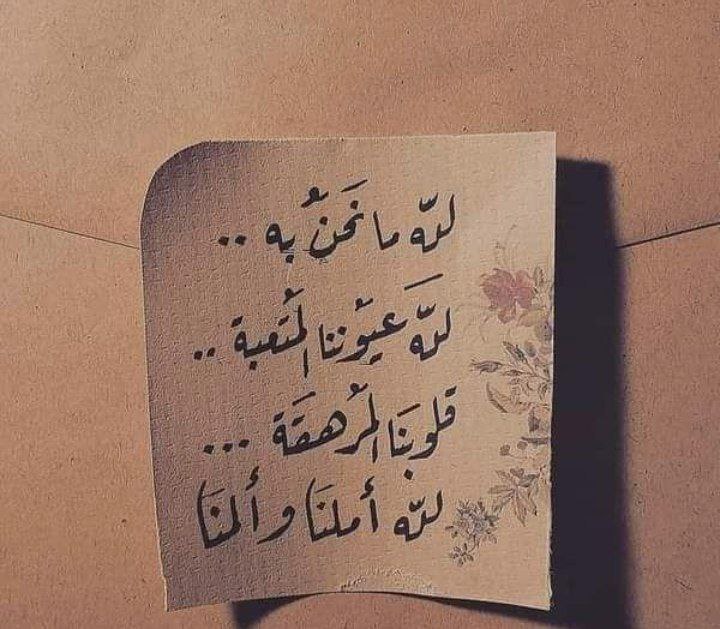 لله ما نَحنُ به ..
لله عَيُوننا المُتعبة ..
قلوبنَا المُرهقَة ...
لله أملنَا و ألمنَا